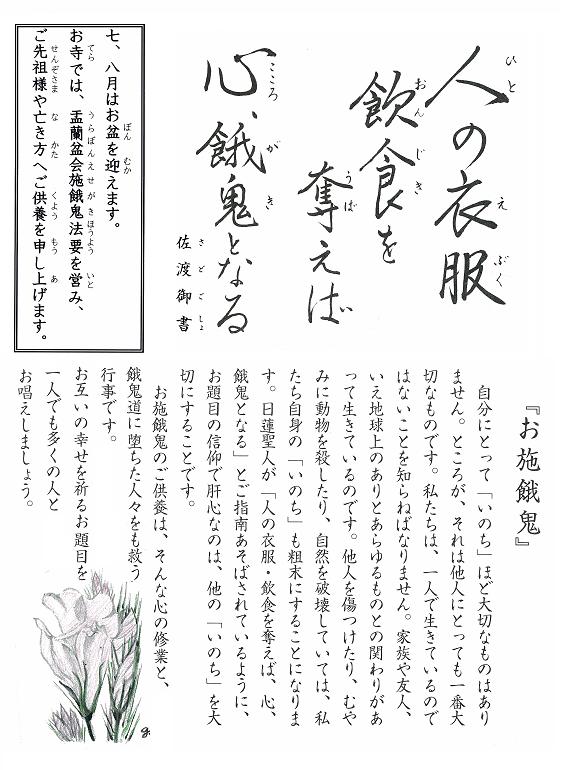 人の衣服
飲食を
奪えば
心、餓鬼となる
佐渡御書
七、八月はお盆を迎えます。
お寺では、盂蘭盆会施餓鬼法要を営み、
ご先祖様や亡き方へご供養を申し上げます。
『お施餓鬼』
自分にとって「いのち」ほど大切なものはあり
ません。ところが、それは他人にとっても一番大
切なものです。私たちは、一人で生きているので
はないことを知らねばなりません。家族や友人、
いえ地球上のありとあらゆるものとの関わりがあ
って生きているのです。他人を傷つけたり、むや
みに動物を殺したり、自然を破壊していては、私
たち自身の「いのち」も粗末にすることになりま
す。日蓮聖人が「人の衣服・飲食を奪えば、心、
餓鬼となる」とご指南あそばされているように、
お題目の信仰で肝心なのは、他の「いのち」を大
切にすることです。
お施餓鬼のご供養は、そんな心の修業と、
餓鬼道に堕ちた人々をも救う
行事です。
お互いの幸せを祈るお題目を
一人でも多くの人と
お唱えしましょう。